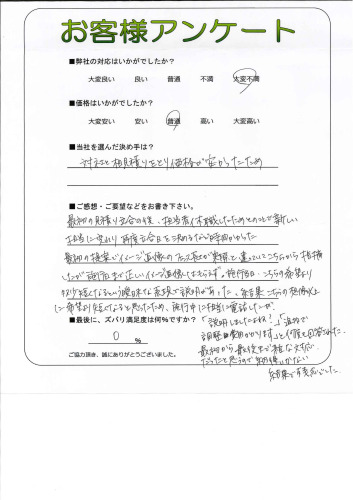 お客様アンケート
■弊社の対応はいかがでしたか?
大変良い 良い 普通 不満 大変不満
■価格はいかがでしたか?
大変安い 安い 普通 高い 大変高い
■当社を選んだ決め手は?
対社と相見積りをとり価格が安かったため
■ご感想・ご要望などをお書き下さい。
最初の見積り立会の後、担当者が退職したためとのことで新しい
担当に変わり再度立会日を決めるなど時間がかかった
最初の提案でイメージ画像の 長さが実際と違っていてこちらから指摘
したが施行まで正しいイメージ画像はもらえず。施行当日、こちらの希望より
短くなるという曖昧な表現で説明があった。結果こちらの想像以上
に希望より短くなると思ったため、施行中に担当に電話したが、
■最後に、ズバリ満足度は何%ですか?
「説明しましたよね?」「追加で
0 %
調整費用がかかります」と 回答された。
最初から最後まで雑な対応
だったと思うので納得いかない
結果で不満足でした。
ご協力頂き、誠にありがとうございました。